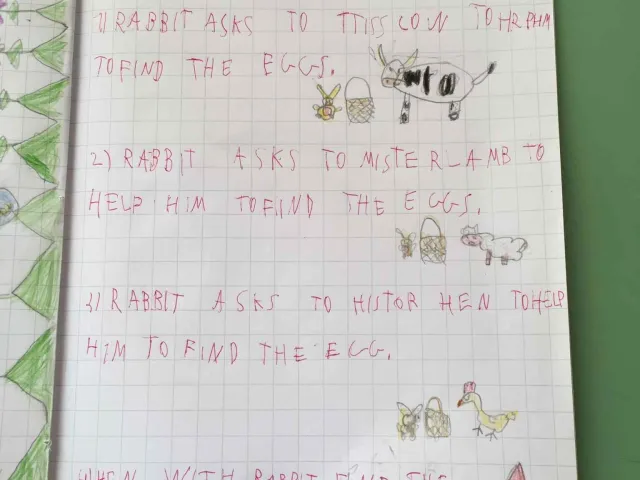 1) RABBIT ASKS TO TTISS COW TO HRPHM
TO FIND THE EGGS.
2) RABBIT ASKS TO MISTER LAMB TO
HELP HIM TO FIND THE EGGS.
3) RABBIT ASKS TO HISTOR HEN TO HELP
HIM TO FIND THE EGG.
WHEN WITH RABBIT FIND THE